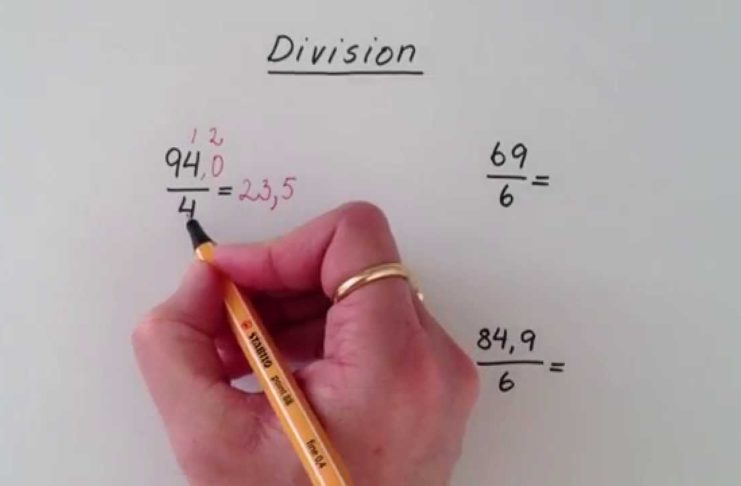 Division
1 2
94,0
4
= 23,5
69
6
=
84,9
6
=
STABILO point 88 fine 0,4